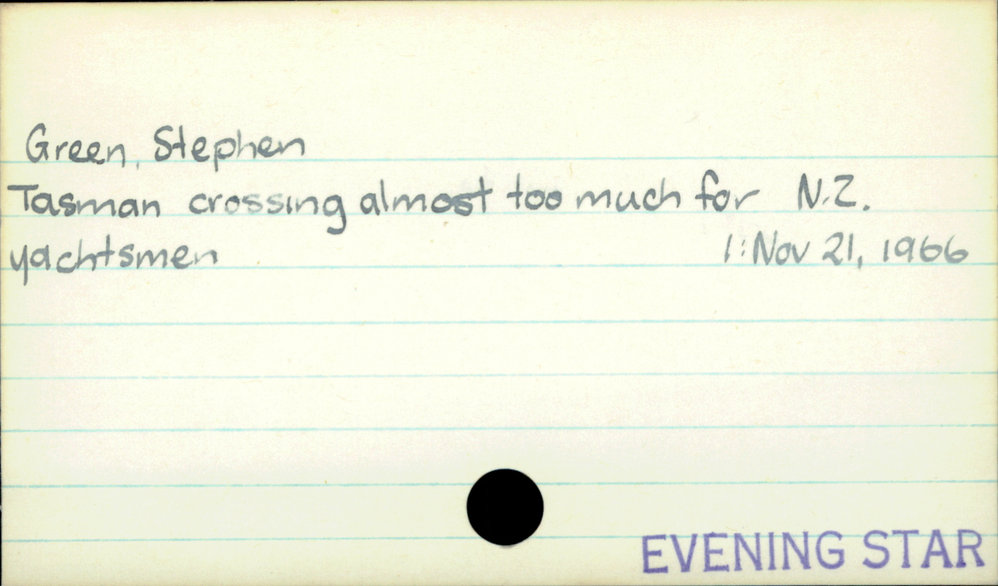 Green, Stephen
Tasman crossing almost too much for N.Z.
yachtsmen 1: Nov 21, 1966
EVENING STAR